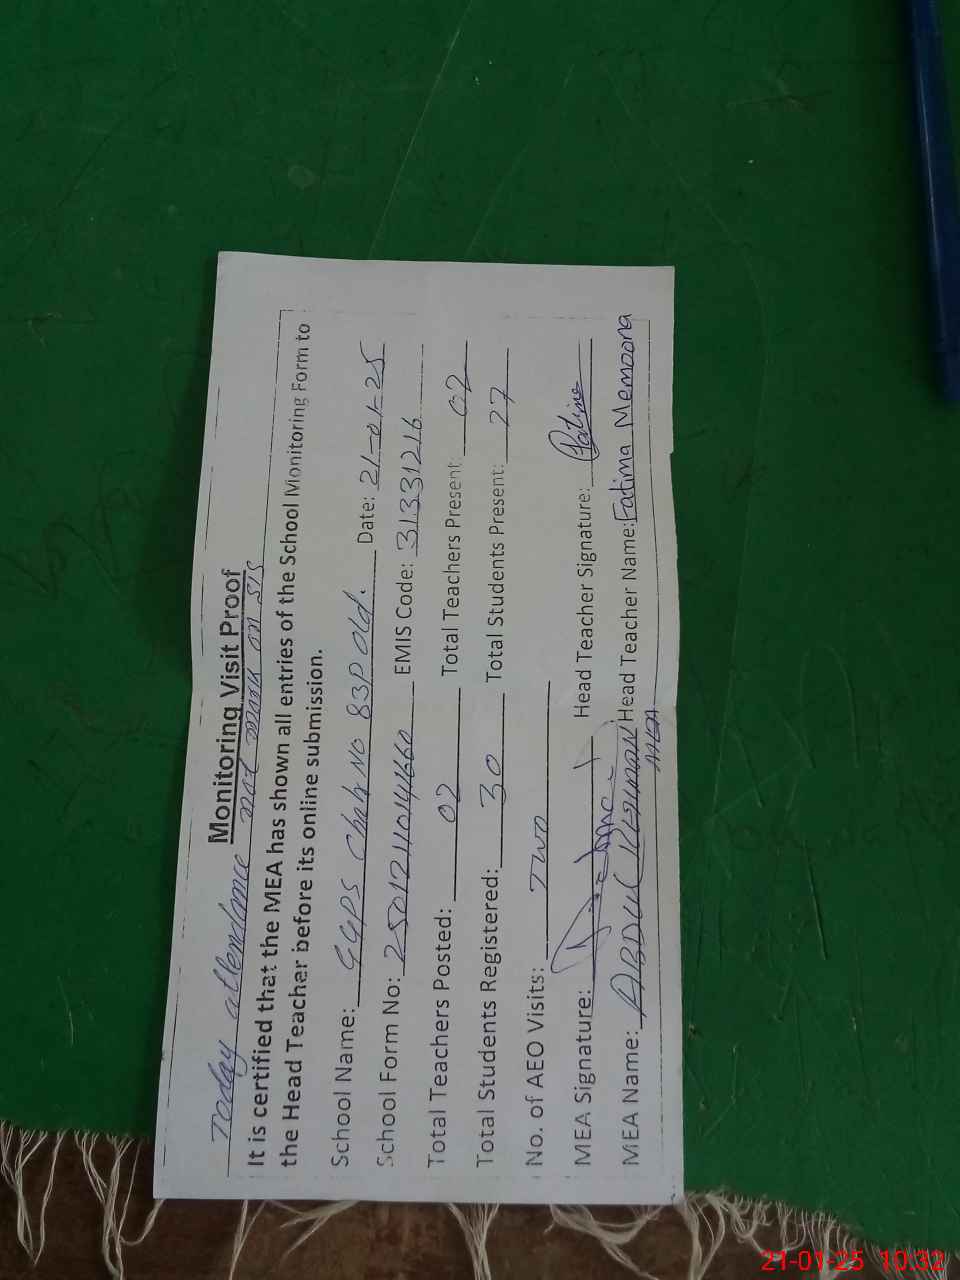 Monitoring Visit Proof
Today attendance not mark on SIS
It is certified that the MEA has shown all entries of the School Monitoring Form to
the Head Teacher before its online submission.
School Name: GGPS Chak No 83P Old. Date: 21-01-25
School Form No: EMIS Code: 31331216
Total Teachers Posted: 02 Total Teachers Present: 02
Total Students Registered: 30 Total Students Present: 27
No. of AEO Visits: Two
MEA Signature: Head Teacher Signature: Fatima
MEA Name: ABDUL REHMAN Head Teacher Name: Fatima Memoona
MEA
21-01-25 10:32